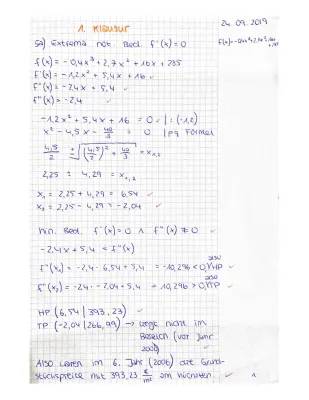 1. Klausur
24.09.2019
5a) Extrema not. Bed. f'(x)=0
f(x) = -0,4x³ + 2,7x² + 16x + 235
f'(x) = -1,2x² + 5,4x + 16
f''(x) = -2,4x + 5,4
f'''(x) = -2,4
-1,2x² + 5,4x + 16 = 0 | : (-1,2)
x² - 4,5x - 40/3 = 0 | pq Formel
4,5/2 ± √((4,5/2)² + 40/3) = x₁,₂
2,25 ± 4,29 = x₁,₂
x₁ = 2,25 + 4,29 = 6,54
x₂ = 2,25 - 4,29 = -2,04
hin. Bed. f'(x)=0 ∧ f''(x) ≠ 0
-2,4x + 5,4 = f''(x)
f''(x₁) = -2,4 · 6,54 + 5,4 = -10,296 < 0, HP
f''(x₂) = -2,4 · -2,04 + 5,4 = 10,296 > 0, TP
HP (6,54 | 393,23)
TP (-2,04 | 266,99) → liegt nicht im
Bereich (vor Jahr
2000)
Also waren im 6. Jahr (2006) die Grund-
stückspreise mit 393,23 €/m² am höchsten.